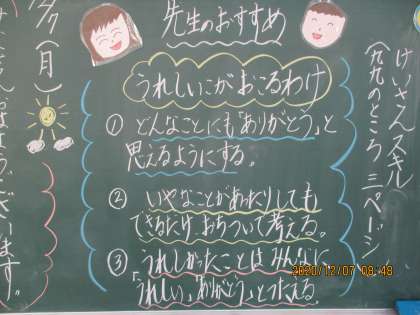 けいさんスキル
(九九のところ 三ページ)
先生のおすすめ
うれしいこがおこるわけ
① どんなことにも「ありがとう」と
思えるようにする。
② いやなことがあったりしても
できるだけ おちついて考える。
③ うれしかったことは みんなに
「うれしい」「ありがとう」とつたえる。
(月)
ございます。
2020/12/07 08:48